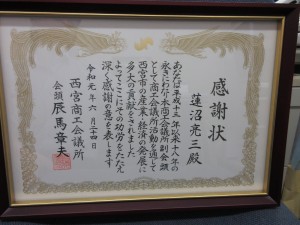 感謝状
蓮沼亮三殿
あなたは平成十三年以来十八年の
永きにわたり本商工会議所副会頭
として商工会議所活動を通して
西宮市の産業・経済の発展に
多大の貢献をされました
よってここにその功労をたたえ
深く感謝の意を表します
令和元年六月二十四日
西宮商工会議所
会頭 辰馬章夫